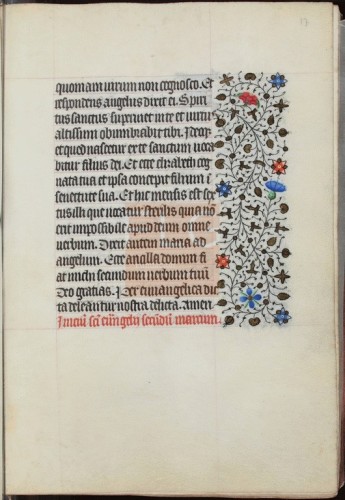 17
quoniam virum non cognosco. Et
respondens angelus dixit ei. Spiri
tus sanctus superveniet in te et virtus
altissimi obumbrabit tibi. Ideoq;
et quod nascetur ex te sanctum voca
bitur filius dei. Et ecce elizabeth cog
nata tua et ipsa concepit filium i
senectute sua. Et hic mensis est sex
tus illi que vocatur sterilis quia no
erit impossibile apud deum omne
verbum. Dixit autem maria ad
angelum. Ecce ancilla domini fi
at michi secundum verbum tuu
Deo gratias. Per evangelica dic
ta deleantur nostra delicta. Amen
Iniciu sci euangelii secundu marcum